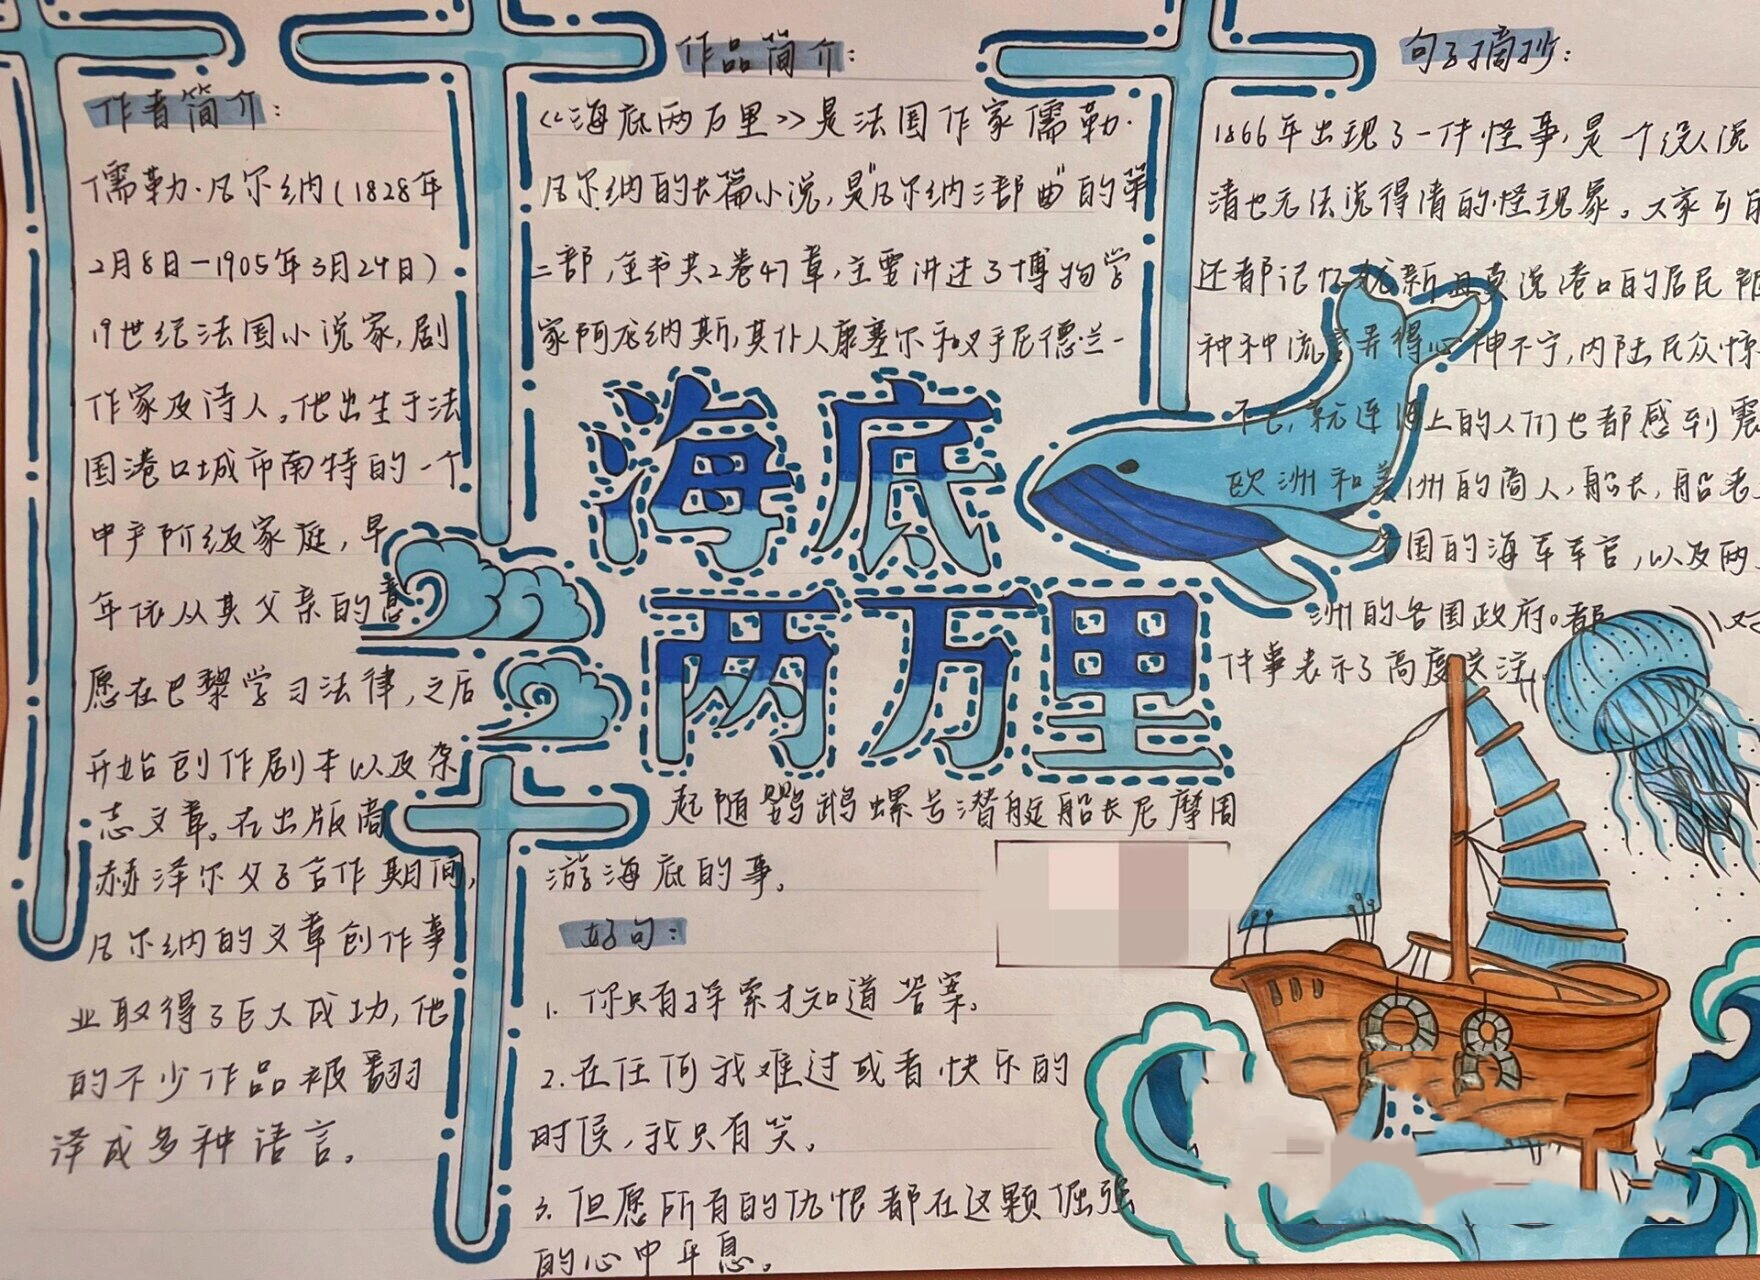 作者简介：
儒勒·凡尔纳（1828年
2月8日—1905年3月24日）
19世纪法国小说家，剧
作家及诗人。他出生于法
国港口城市南特的一个
中产阶级家庭，早
年依从其父亲的意
愿在巴黎学习法律，之后
开始创作剧本以及杂
志文章。在出版商
赫泽尔父子合作期间，
凡尔纳的文章创作事
业取得了巨大成功，他
的不少作品被翻
译成多种语言。
作品简介：
《海底两万里》是法国作家儒勒·
凡尔纳的长篇小说，是"凡尔纳三部曲"的第
二部，全书共2卷47章，主要讲述了博物学
家阿龙纳斯，其仆人康塞尔和叉手尼德·兰一
海底
两万里
起随鹦鹉螺号潜艇船长尼摩周
游海底的事。
好句：
1. 你只有探索才知道答案。
2. 在任何我难过或者快乐的
时候，我只有笑。
3. 但愿所有的仇恨都在这颗倔强
的心中平息。
句子摘抄：
1866年出现了一件怪事，是一个没人说
清也无法说得清的怪现象。大家可
还都记忆犹新且莫说港口的居民
种种流言弄得心神不宁，内陆民众惊
不已，就连海上的人们也都感到震
欧洲和美洲的商人，船长，船老
国的海军军官，以及两
洲的各国政府。都 对
件事表示了高度关注